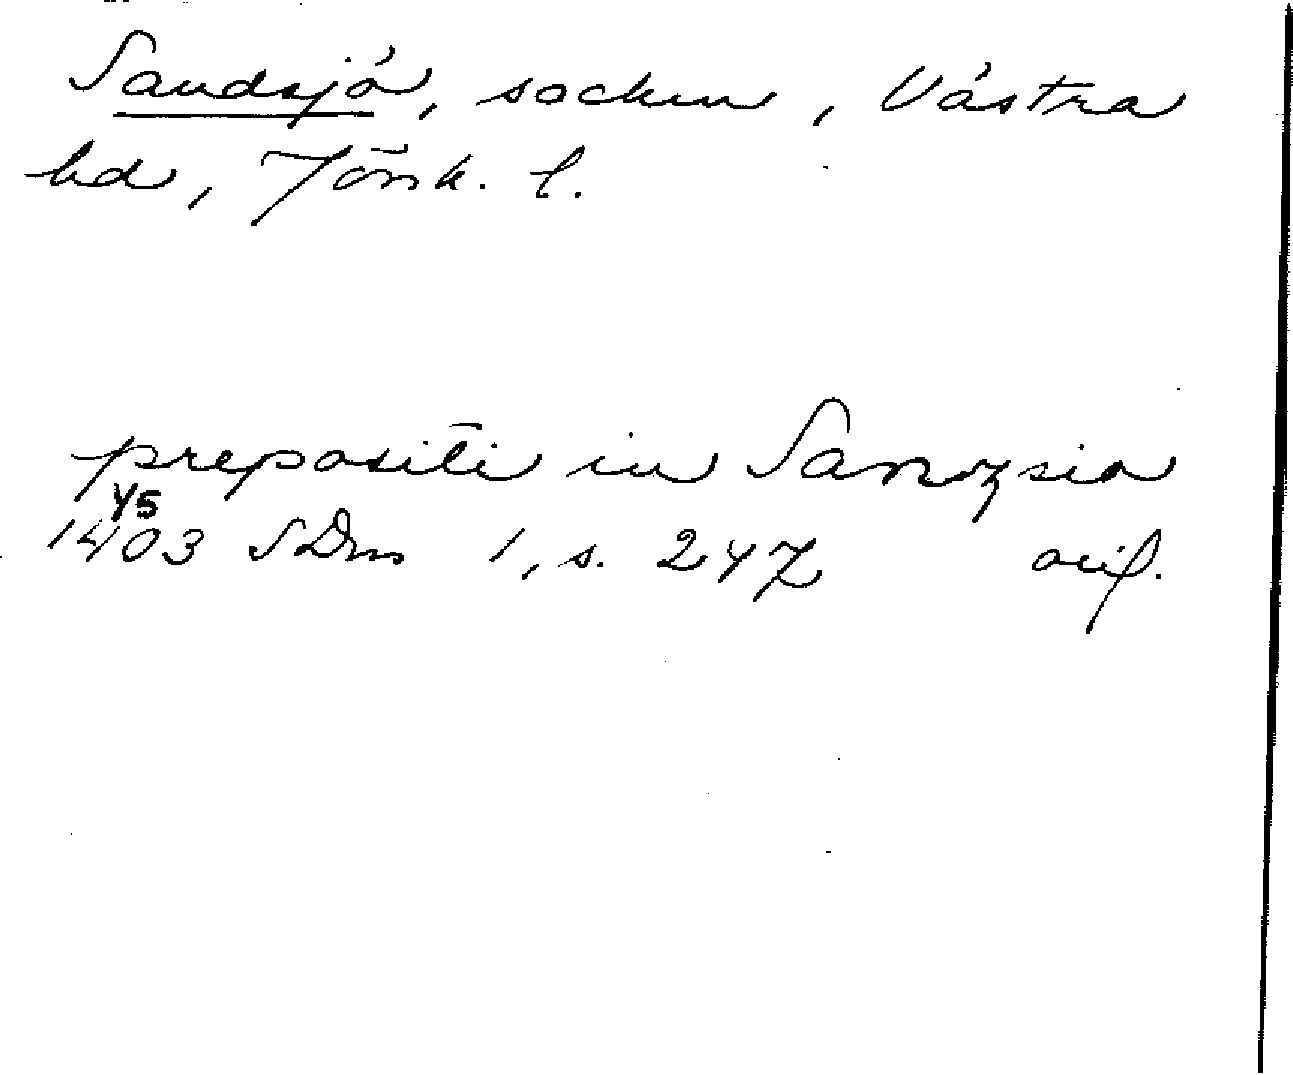 Sandsjö, socken, Västra
hd, Jönk. l.
prepositi in Sanozsio
4/5
1403 SDns 1, s. 247 orig.